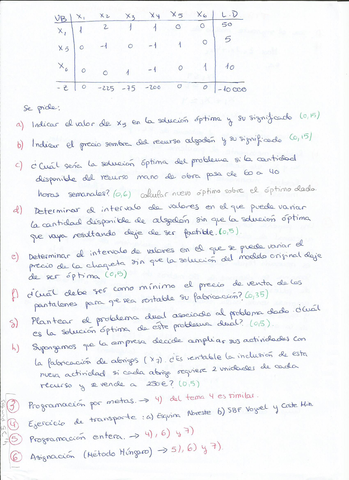 VB X₁ X₂ X₃ X₄ X₅ X₆ L.D
X₁ 1 2 1 1 0 0 50
X₅ 0 -1 0 -1 1 0 5
X₆ 0 0 1 -1 0 1 10
-z 0 -225 -75 -200 0 0 -10000
Se pide:
a) Indicar el valor de X₅ en la solución óptima y su significado (0,15)
b) Indicar el precio sombra del recurso algodón y su significado (0,15)
c) ¿Cuál sería la solución óptima del problema si la cantidad
disponible del recurso mano de obra pasa de 60 a 40
horas semanales? (0,6) calcular nuevo óptimo sobre el óptimo dado
d) Determinar el intervalo de valores en el que puede variar
la cantidad disponible de algodón sin que la solución óptima
que vaya resultando deje de ser factible. (0,5)
e) Determinar el intervalo de valores en el que se puede variar el
precio de la chaqueta sin que la solución del modelo original deje
de ser óptima (0,5)
f) ¿Cuál debe ser como mínimo el precio de venta de los
pantalones para que sea rentable su fabricación? (0,35)
g) Plantear el problema dual asociado al problema dado ¿Cuál
es la solución óptima de este problema dual? (0,5)
h) Supongamos que la empresa decide ampliar sus actividades con
la fabricación de abrigos (X₇) ¿es rentable la inclusión de esta
nueva actividad si cada abrigo requiere 2 unidades de cada
recurso y se vende a 230€? (0,5)
③ Programación por metas. → 4) del tema 4 es similar.
④ Ejercicio de transporte: a) Esquina Noreste b) SBF Vogel y Coste Mín
⑤ Programación entera. → 4), 6) y 7)
⑥ Asignación (Método Húngaro) → 5), 6) y 7)